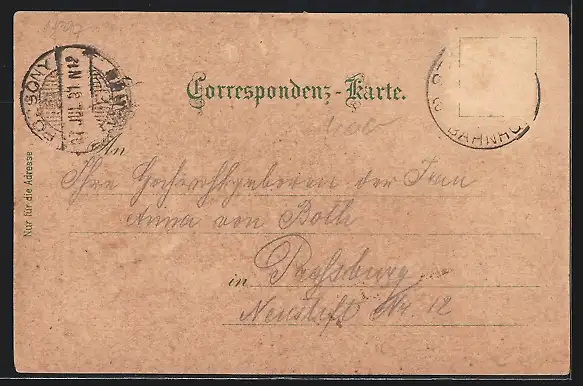 1897
POZSONY
97 JUL 31 N12
BAHNHO
Correspondenz-Karte.
Nur für die Adresse
An
Ihre Hochwohlgeboren der Frau
Anna von Bolle
in Preßburg
Neustift Nr. 12